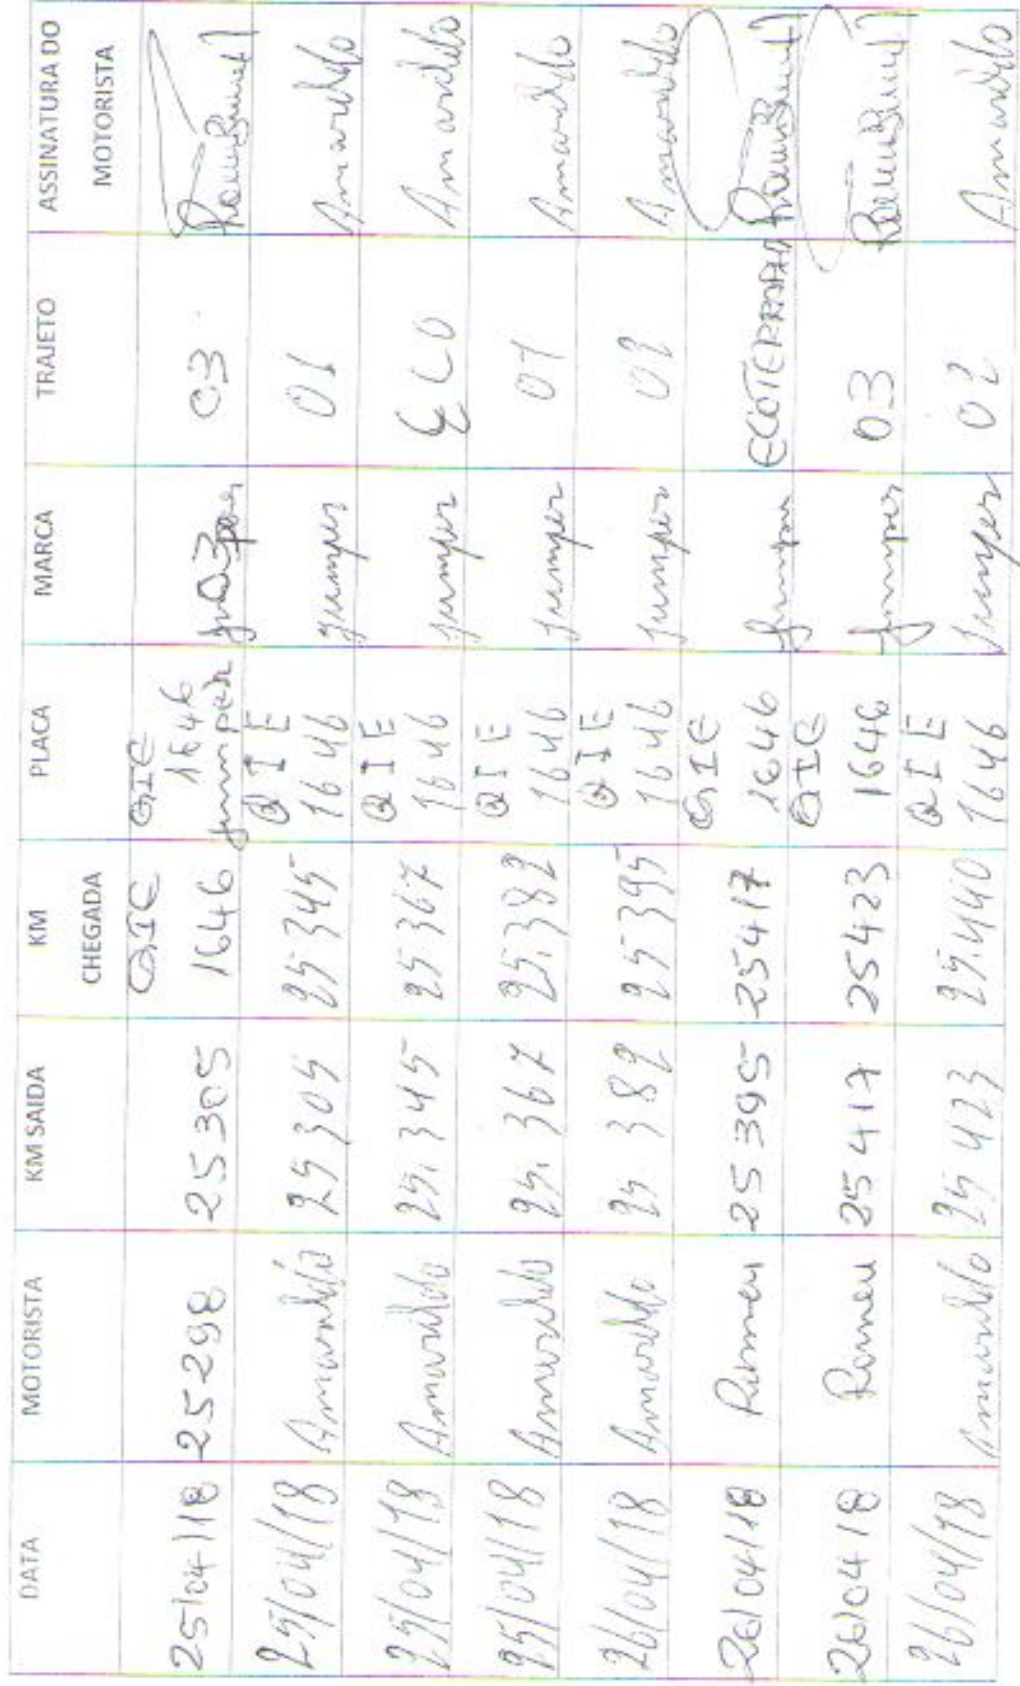 DATA MOTORISTA KM SAIDA KM CHEGADA PLACA MARCA TRAJETO ASSINATURA DO MOTORISTA
25/04/18 25298 25305 QIE 1646 QIE 1646 Jumper 03
25/04/18 Amarildo 25305 25345 QIE 1646 Jumper 01 Amarildo
25/04/18 Amarildo 25.345 25367 QIE 1646 Jumper ECO Amarildo
25/04/18 Amarildo 25.367 25.382 QIE 1646 Jumper 01 Amarildo
26/04/18 Amarildo 25.382 25395 QIE 1646 Jumper 02 Amarildo
26/04/18 Romeu 25395 25417 QIE 1646 Jumper ECOTERRAPIA
26/04 18 Romeu 25417 25423 QIE 1646 Jumper 03
26/04/18 Amarildo 25423 25.440 QIE 1646 Jumper 02 Amarildo